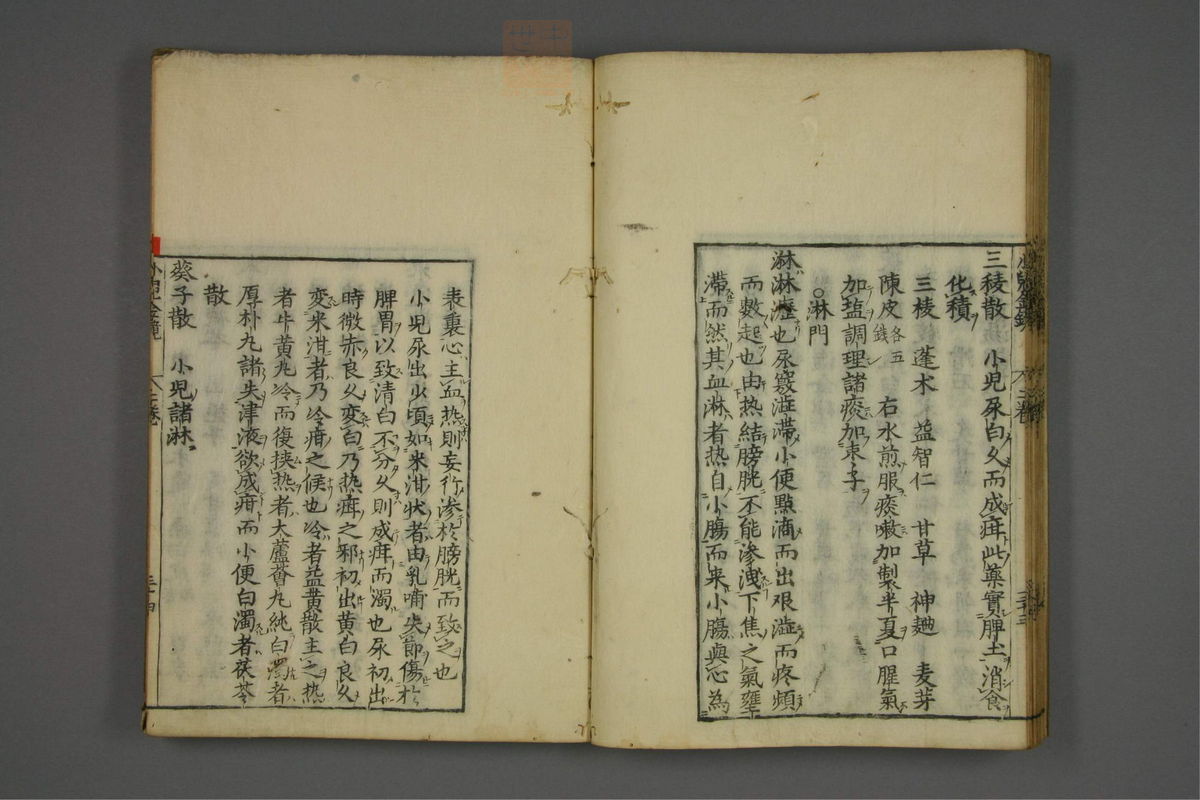 三稜散 小児尿白久而成疳此薬實脾土消食
化積
三棱 蓬朮 益智仁 甘草 神麯 麦芽
陳皮各五錢 右水煎服痰嗽加製半夏口腥氣
加盐調理諸痰加朿子
○淋門
淋淋瀝也尿竅澁滞小便點滴而出艰澁而疼頻
而數起也由热結膀胱不能滲洩下焦之氣壅
滞而然其血淋者热自小腸而来小腸與心為
表裏心主血热則妄行渗於膀胱而致之也
小児尿出少頃如米泔状者由乳哺失節傷於
脾胃以致清白不分久則成疳而濁也尿初出
時微赤良久変白乃热疳之邪初出黄白良久
変米泔者乃冷疳之候也冷者益黄散主之热
者牛黄丸冷而復挟热者大蘆薈丸純白濁者
厚朴丸諸失津液欲成疳而小便白濁者茯苓
散
葵子散 小児諸淋
小児全鏡 上巻 三十四